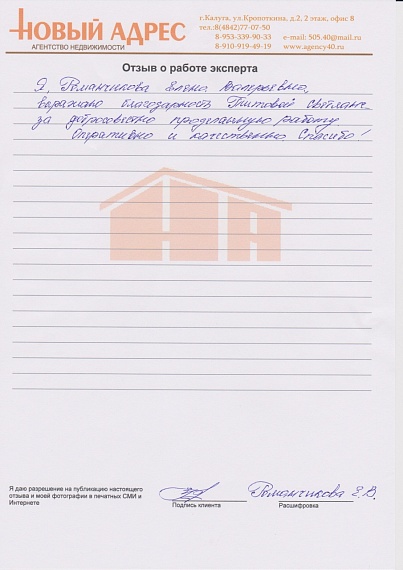 НОВЫЙ АДРЕС
АГЕНТСТВО НЕДВИЖИМОСТИ
г.Калуга, ул.Кропоткина, д.2, 2 этаж, офис 8
тел.:8(4842)77-07-50
8-953-339-90-33 e-mail: 505.40@mail.ru
8-910-919-49-19 www.agency40.ru
Отзыв о работе эксперта
Я, Романчикова Елена Валерьевна,
выражаю благодарность Титовой Светлане
за добросовестно проделанную работу
Оперативно и качественно. Спасибо!
НА
Я даю разрешение на публикацию настоящего
отзыва и моей фотографии в печатных СМИ и
Интернете
Романчикова Е.В.
Подпись клиента Расшифровка